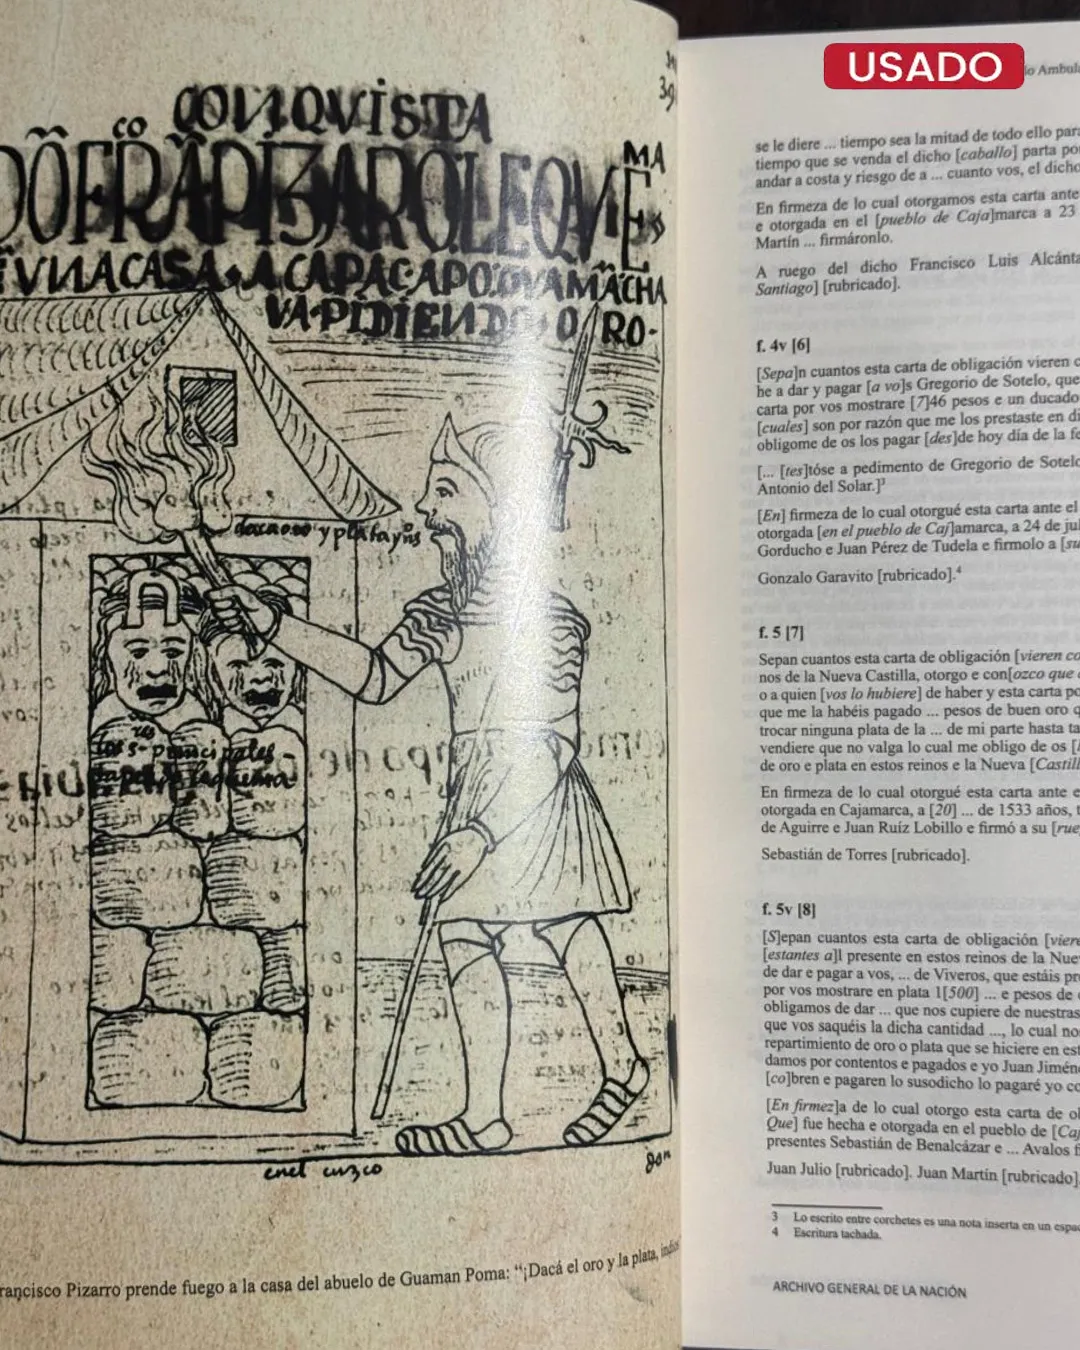 CONQVISTA
DŌFRĀPIZAROLEQVE
MA
TVNACASA·ACAPACAPOGVAMĀCHA
VA·PIDIENDO·ORO·
39
daca oro y plata yn̄s
los principales
en el cuzco
Francisco Pizarro prende fuego a la casa del abuelo de Guaman Poma: "¡Dacá el oro y la plata, indios
USADO
io Ambula
se le diere ... tiempo sea la mitad de todo ello para
tiempo que se venda el dicho [caballo] parta po
andar a costa y riesgo de a ... cuanto vos, el dicho
En firmeza de lo cual otorgamos esta carta ante
e otorgada en el [pueblo de Caja]marca a 23
Martín ... firmáronlo.
A ruego del dicho Francisco Luis Alcánta
Santiago] [rubricado].
f. 4v [6]
[Sepa]n cuantos esta carta de obligación vieren c
he a dar y pagar [a vo]s Gregorio de Sotelo, que
carta por vos mostrare [7]46 pesos e un ducado
[cuales] son por razón que me los prestaste en di
obligome de os los pagar [des]de hoy día de la fe
[... [tes]tóse a pedimento de Gregorio de Sotelo
Antonio del Solar.]3
[En] firmeza de lo cual otorgué esta carta ante el
otorgada [en el pueblo de Caj]amarca, a 24 de jul
Gorducho e Juan Pérez de Tudela e firmolo a [su
Gonzalo Garavito [rubricado].4
f. 5 [7]
Sepan cuantos esta carta de obligación [vieren co
nos de la Nueva Castilla, otorgo e con[ozco que
o a quien [vos lo hubiere] de haber y esta carta po
que me la habéis pagado ... pesos de buen oro q
trocar ninguna plata de la ... de mi parte hasta ta
vendiere que no valga lo cual me obligo de os [
de oro e plata en estos reinos e la Nueva [Castill
En firmeza de lo cual otorgué esta carta ante e
otorgada en Cajamarca, a [20] ... de 1533 años, t
de Aguirre e Juan Ruíz Lobillo e firmó a su [rue
Sebastián de Torres [rubricado].
f. 5v [8]
[S]epan cuantos esta carta de obligación [viere
[estantes a]l presente en estos reinos de la Nue
de dar e pagar a vos, ... de Viveros, que estáis pr
por vos mostrare en plata 1[500] ... e pesos de
obligamos de dar ... que nos cupiere de nuestras
que vos saquéis la dicha cantidad ..., lo cual no
repartimiento de oro o plata que se hiciere en est
damos por contentos e pagados e yo Juan Jiméne
[co]bren e pagaren lo susodicho lo pagaré yo co
[En firmez]a de lo cual otorgo esta carta de ob
Que] fue hecha e otorgada en el pueblo de [Caj
presentes Sebastián de Benalcázar e ... Avalos f
Juan Julio [rubricado]. Juan Martín [rubricado].
3 Lo escrito entre corchetes es una nota inserta en un espac
4 Escritura tachada.
ARCHIVO GENERAL DE LA NACIÓN